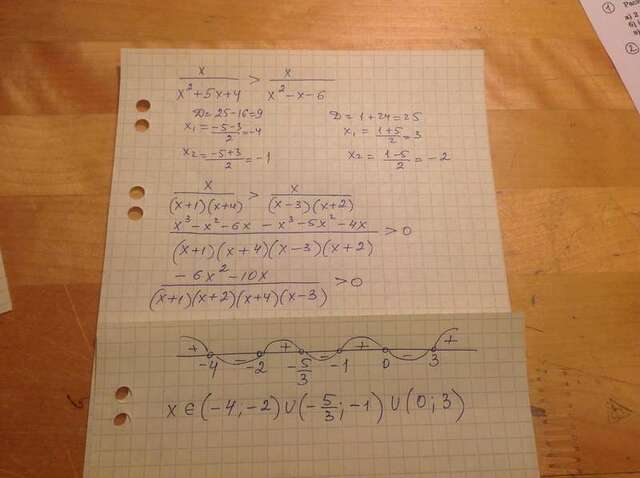 x/(x²+5x+4) > x/(x²-x-6)
D=25-16=9 D=1+24=25
x₁=(-5-3)/2=-4 x₁=(1+5)/2=3
x₂=(-5+3)/2=-1 x₂=(1-5)/2=-2
x/((x+1)(x+4)) > x/((x-3)(x+2))
(x³-x²-6x-x³-5x²-4x)/((x+1)(x+4)(x-3)(x+2)) >0
(-6x²-10x)/((x+1)(x+2)(x+4)(x-3)) >0
+ - + - + - +
-4 -2 -5/3 -1 0 3
x∈(-4;-2)∪(-5/3;-1)∪(0;3)
①
а) 2
②